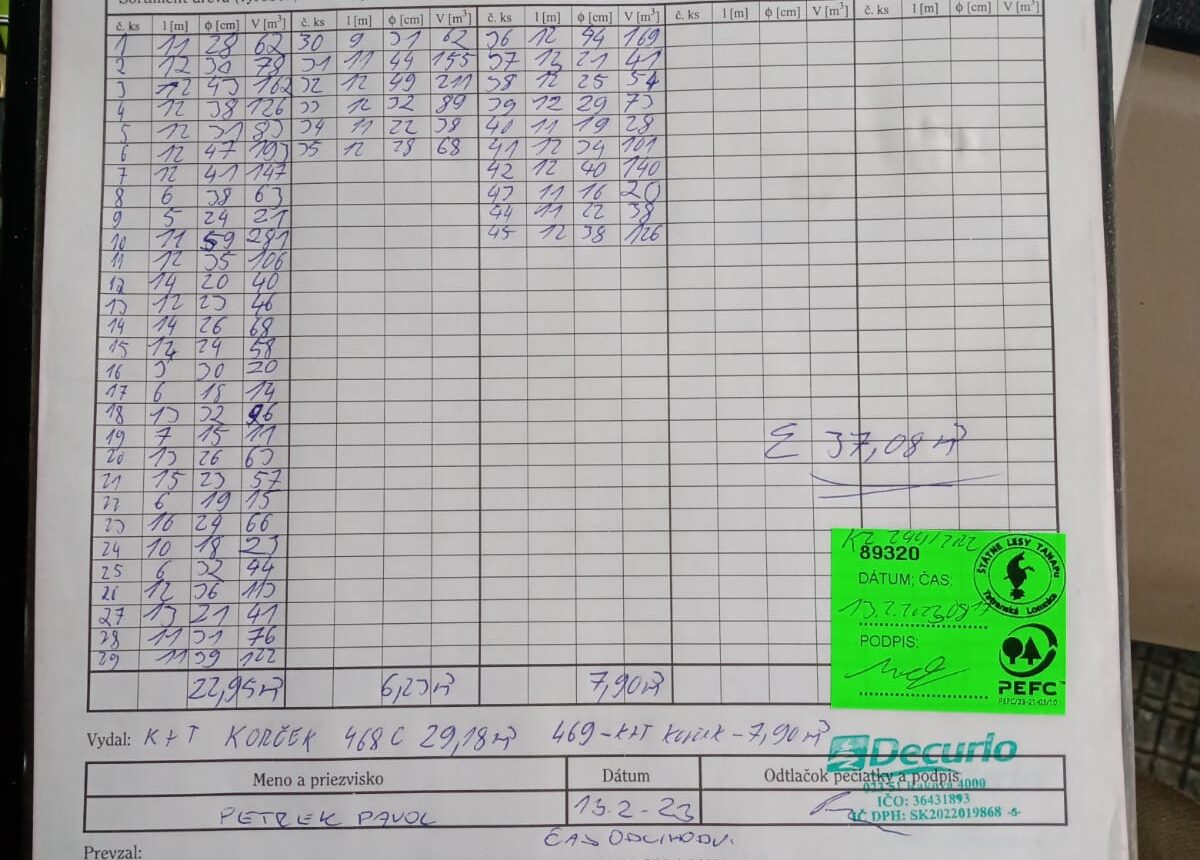 Sortiment dreva
č. ks l [m] ϕ [cm] V [m³] č. ks l [m] ϕ [cm] V [m³] č. ks l [m] ϕ [cm] V [m³] č. ks l [m] ϕ [cm] V [m³] č. ks l [m] ϕ [cm] V [m³]
1 11 28 62 30 9 31 62 36 12 44 169
2 12 30 78 31 11 44 155 37 12 21 41
3 12 43 162 32 12 49 211 38 12 25 54
4 12 38 126 33 12 32 89 39 12 29 73
5 12 31 83 34 11 22 38 40 11 19 28
6 12 47 193 35 12 28 68 41 12 34 101
7 12 41 147 42 12 40 140
8 6 38 63 43 11 16 20
9 5 24 21 44 11 22 38
10 11 59 281 45 12 38 126
11 12 35 106
12 14 20 40
13 12 23 46
14 14 26 68
15 12 24 58
16 3 30 20
17 6 18 14
18 13 32 96
19 7 15 11
20 13 26 63
21 15 23 57
22 6 19 15
23 16 24 66
24 10 18 23
25 6 32 44
26 12 36 113
27 13 21 41
28 11 31 76
29 11 39 122
Σ 37,08 m³
22,95 m³ 6,23 m³ 7,90 m³
89320
DÁTUM; ČAS:
13.2.2023
PODPIS:
ŠTÁTNE LESY TANAPU
Tatranská Lomnica
PEFC™
PEFC/23-21-03/10
Vydal: K+T KORČEK 468 C 29,18 m³ 469 - K+T Korček - 7,90 m³
Decurio
Meno a priezvisko Dátum Odtlačok pečiatky a podpis
023 51 Raková 4000
IČO: 36431893
IČ DPH: SK2022019868 -5-
PETREK PAVOL 13.2-23
ČAS ODCHODU.
Prevzal: